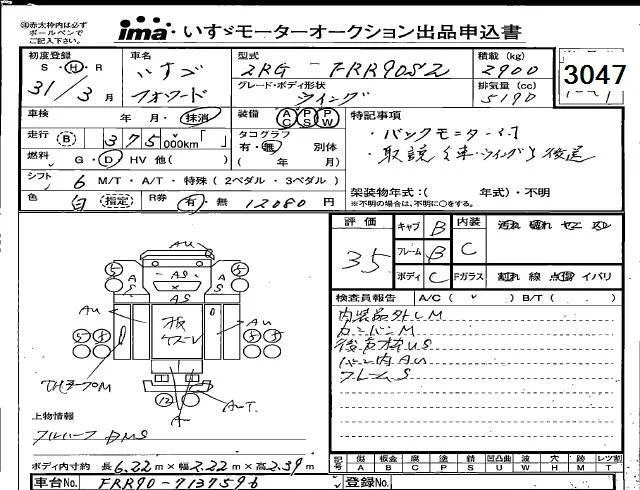 ㊟赤太枠内は必ず
ボールペンで
ご記入下さい。
ima・いすゞモーターオークション出品申込書
初度登録 S・H・R 31/3月
車名 いすゞ フォワード
型式 2RG-FRR90S2
グレード・ボディ形状 ウイング
積載(kg) 2900
排気量(cc) 5190
3047
車検 年・月・抹消
装備 AC PS PW
特記事項
・バックモニター
・取説(車・ウイング)後送
走行 B 375000km「 」
タコグラフ 有・無 別体 ( 年 月)
燃料 G・D HV 他( )
シフト 6 M/T・A/T・特殊(2ペダル・3ペダル)
架装物年式:( 年式)・不明
※不明の場合は、不明に○をする。
色 白 指定 R券 有・無 12080円
評価 35
キャブ B
フレーム B
ボディ C
内装 C
汚れ 破れ ヤニ スレ
Fガラス 割れ 線 点傷 イバリ
検査員報告 A/C( ) B/T( )
内装品外しM
カンバンM
後支枠US
バン内AU
フレームS
AU
S S
A A
S S
AS
AS
AU AU
板
A-T
12
A
上物情報
フルハーフ DMS
ボディ内寸約 長6.22m×幅2.22m×高2.39m
記号 傷 板金 腐 塗 錆 凹凸曲 波 穴 跡 レツ割
A B C P S U W H M T
車台No. FRR90-7137596
登録No.